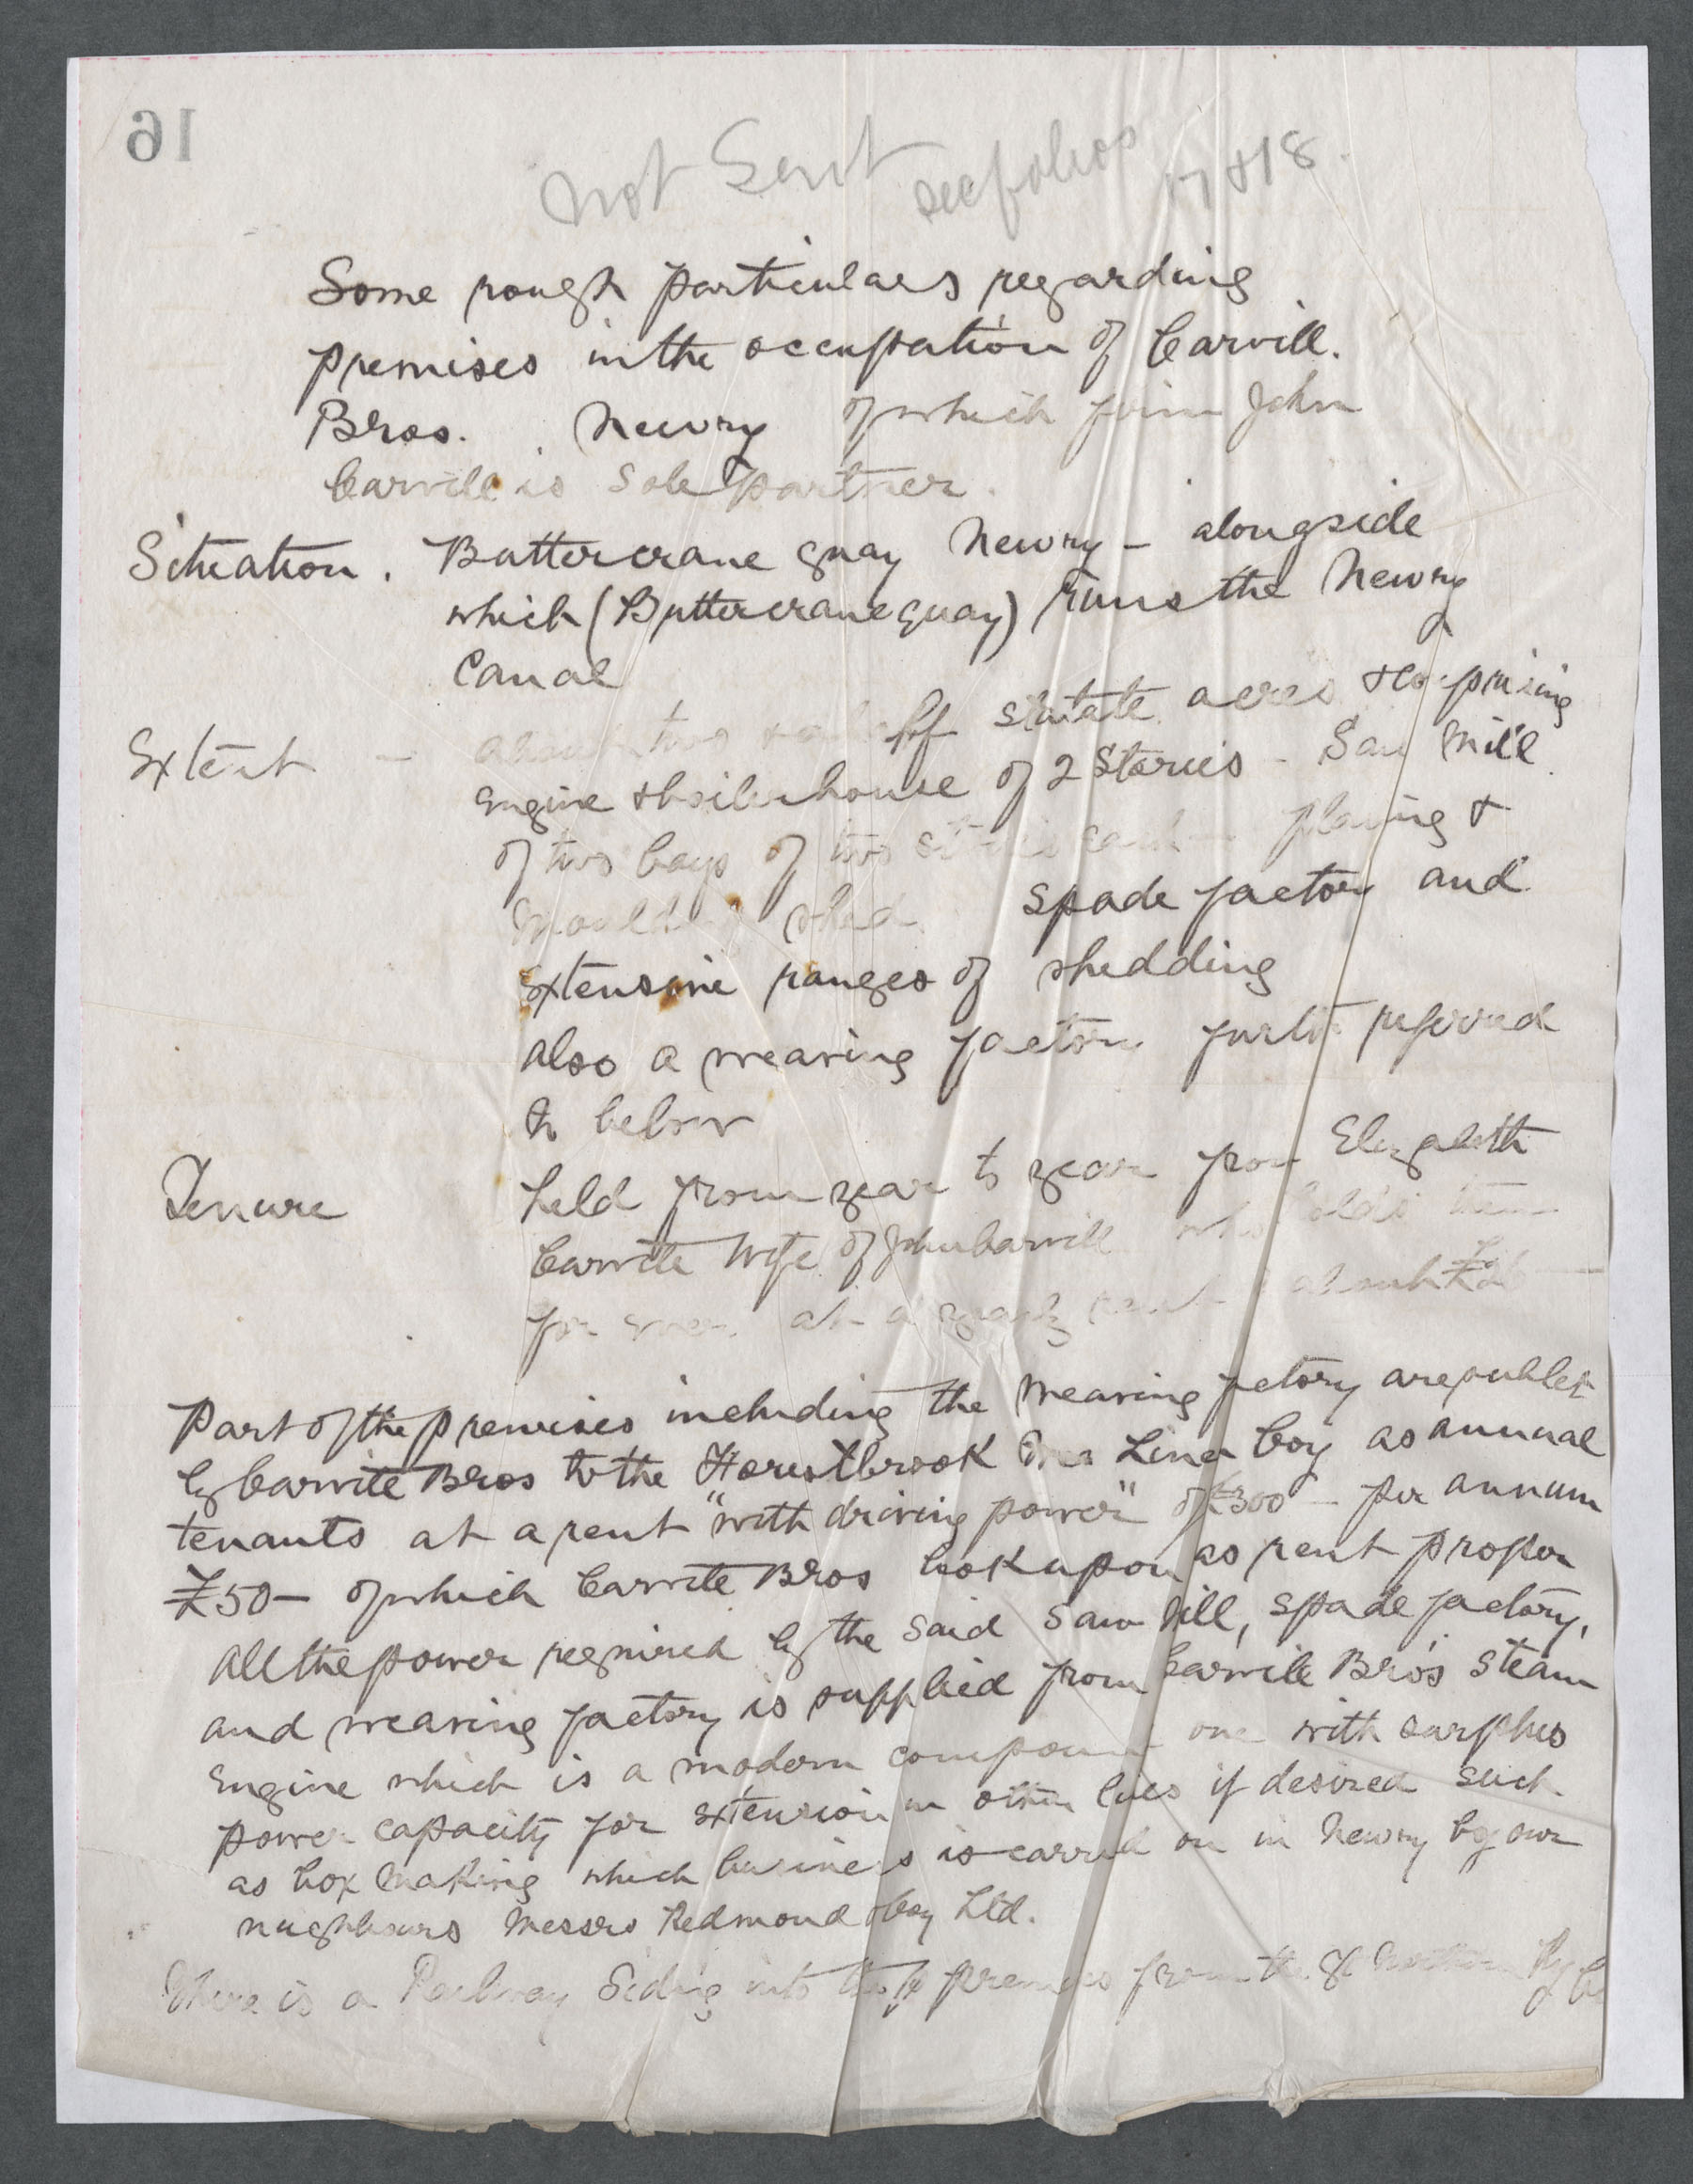 16
Not Sent see folios 17 & 18.
Some rough particulars regarding
premises in the occupation of Carvill.
Bros. Newry of which firm John
Carvill is Sole partner.
Situation. Buttercrane quay Newry – alongside
which (Buttercrane quay) runs the Newry
Canal
Extent – about two & a half statute acres & comprising
Engine & boilerhouse of 2 Stories – Saw Mill
of two bays of two stories each – planing &
Moulding shed spade factory and
Extensive ranges of shedding
also a weaving factory further referred
to below
Tenure held from year to year from Elizabeth
Carvill Wife of John Carvill who holds them
for ever at a yearly rent about
Part of the premises including the Weaving factory are sublet
by Carvill Bros to the Forestbrook Linen Coy as annual
tenants at a rent "with driving power" of £300 – per annum
£50 – of which Carvill Bros look upon as rent proper
All the power required by the said Saw Mill, Spade factory,
and weaving factory is supplied from Carvill Bro's Steam
Engine which is a modern compound one with surplus
power capacity for Extension in other lines if desired such
as box Making which business is carried on in Newry by our
neighbours Messrs Redmond & Coy Ltd.
There is a Railway Siding into the premises from the Gt Northern Ry Co